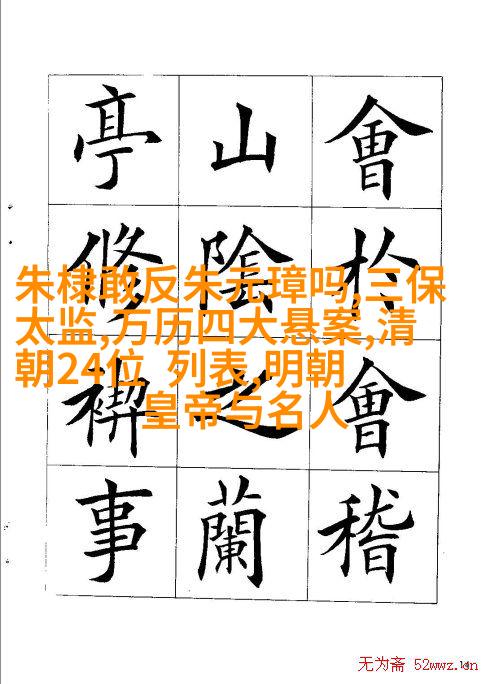 會於會稽
山陰之蘭
亭修禊事
朱棣敢反朱元璋吗,三保
太监,万历四大悬案,清
朝24位 列表,明朝
皇帝与名人
无为斋 52wwz.cn